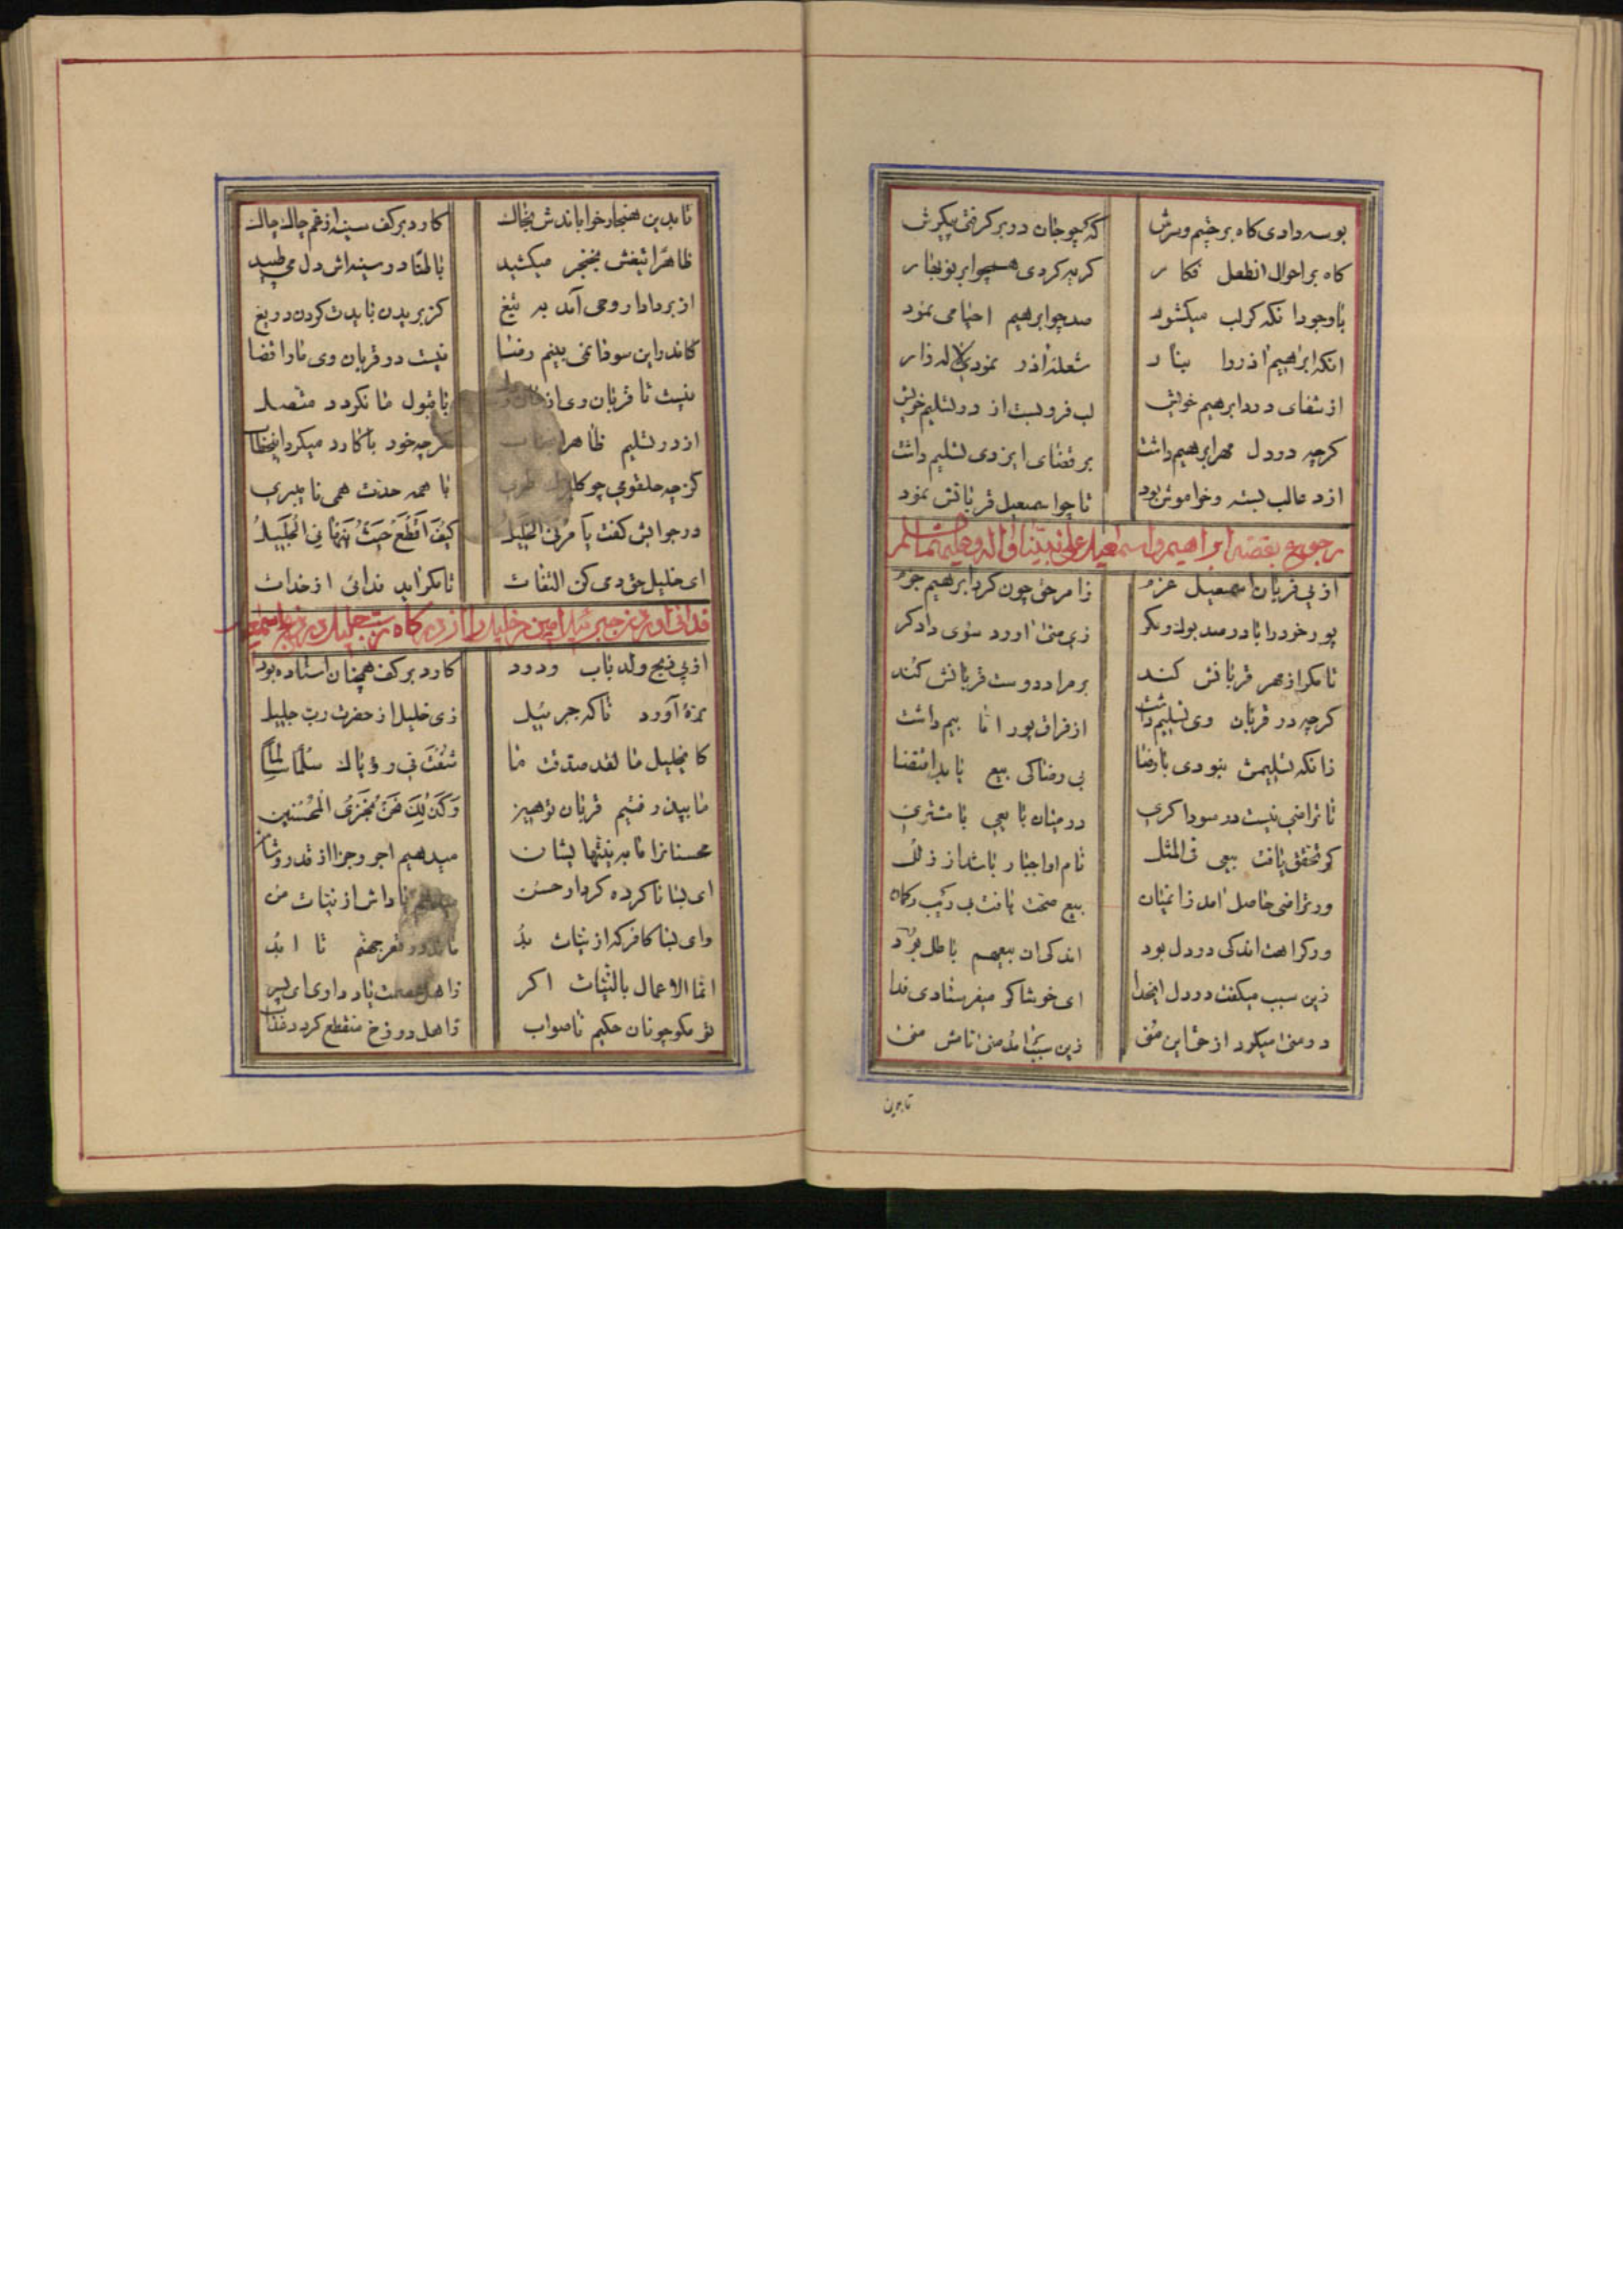 بوسه دادی کاه بر چشم و سرش که چو جان در بر کرفتی پیکرش
کاه بر احوال انطفل فکار کریه کردی همچو ابر نوبهار
با وجود انکه کر لب میکشود صد چو ابرهیم احیا می نمود
انکه ابرهیم اذر را بنار شعله اذر نمودی لاله زار
از شفای درد ابرهیم خویش لب فرو بست از در تسلیم خویش
کرچه در دل مهر ابرهیم داشت بر قضای ایزدی تسلیم داشت
از دعا لب بسته و خواموش بود تا چو اسمعیل قربانش نمود
رجوع بقصه ابراهیم و اسمعیل علی نبینا و اله و علیهما السلم
از پی قربان اسمعیل عزم ز امر حق چون کرد ابرهیم جزم
پور خود را با دو صد بوک و مکر زی منی اورد سوی دادکر
تا مکر از مهر قربانش کند بر مراد دوست قربانش کند
کرچه در قربان وی تسلیم داشت از فراق پور اما بیم داشت
زانکه تسلیمش نبودی با رضا بی رضا کی بیع یابد امتضا
تا تراضی نیست در سوداکری در میان بایعی با مشتری
کر تحقق یافت بیعی فی المثل نام او اجبار باشد از زلل
ور تراضی حاصل امد زانمیان بیع صحت یافت بی ریب و کمان
ور کراهت اندکی در دل بود اندکی ان بیعهم باطل بود
زین سبب میکفت در دل ایخدا ای خوشا کر میفرستادی فدا
در منی میکرد از حق این منی زین سبب امد منی نامش منی
تا بدین
تا بدین هنجار خواباندش بخاک کارد بر کف سینه از غم چاک چاک
ظاهرا تیغش بخنجر میکشید باطنا در سینه اش دل می طپید
از بر دادار وحی آمد به تیغ کز بریدن بایدت کردن دریغ
کاندر این سودا نمی بینم رضا نیست در قربان وی ما را قضا
نیست تا قربان وی از با قبول ما نکردد متصل
از در تسلیم ظاهر کرچه خود با کارد میکرد اینخطاب
کز چه حلقومی چو کلبرک طری با همه حدت همی نا بیبری
در جوابش کفت یا مرئ الخلیل کیف اقطع حیث نهانی الجلیل
ای خلیل حق دمی کن التفات تا مکر اید فدائی از خدات
فدائی اوردن جبرئیل امین خلیل را از درکاه رب جلیل در ذبح اسمعیل
از پی ذبح ولد باب ودود کارد بر کف همچنان استاده بود
مژده آورد ناکه جبرئیل زی خلیل از حضرت رب جلیل
کایخلیل ما لقد صدقت ما شفت فی رؤیاک سلما سالما
ما پذیرفتیم قربان تو هین و کذلک نحن نجزی المحسنین
محسنانرا ما به نیتهایشان میدهیم اجر و جزا از قدر و شان
ای بسا ناکرده کردار حسن میدهم پاداش از نیات من
وای بسا کافر که از نیات بد ماند در قعر جهنم تا ابد
انما الاعمال بالنیات اکر ز اهل عصمت یاد داری ای پسر
تو مکو چونان حکیم ناصواب ز اهل دوزخ منقطع کردد عذاب